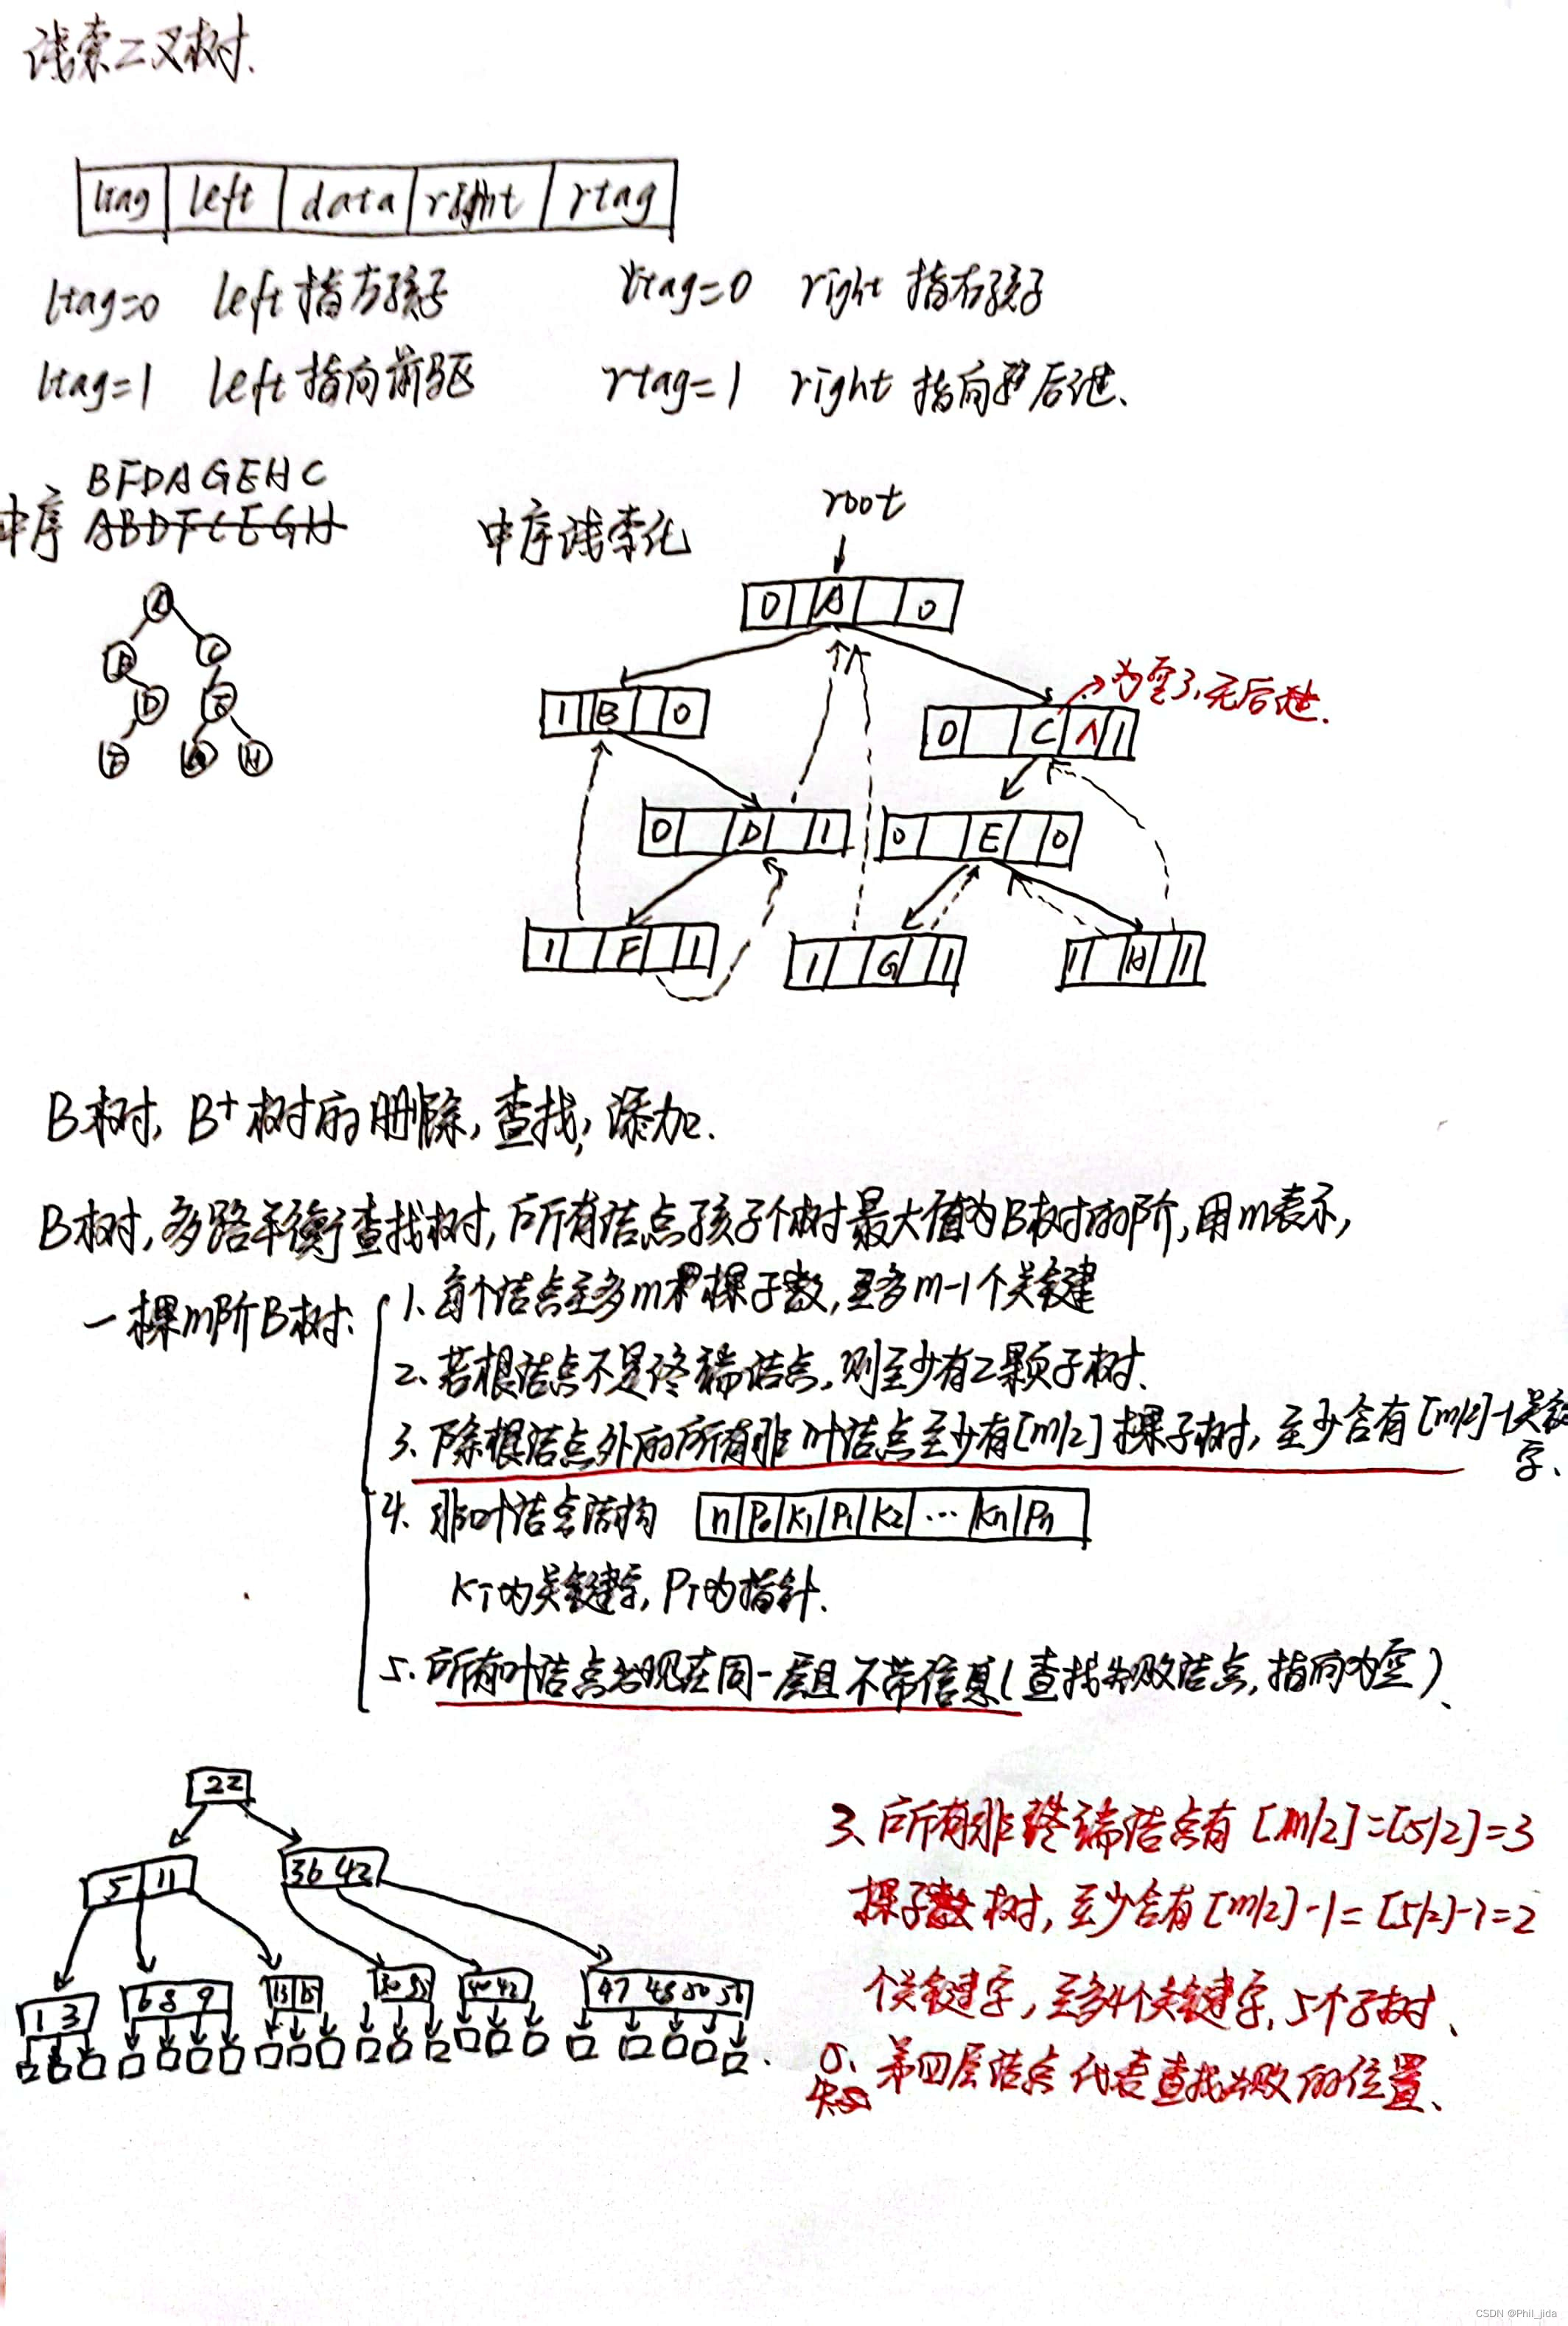 线索二叉树.
ltag left data right rtag
ltag=0 left指左孩子 rtag=0 right 指右孩子
ltag=1 left指向前驱 rtag=1 right 指向后继、
BFDAGEHC
中序 ABDFCEGH
中序线索化
root
A
B C
D E
F G H
0 A 0
为空了,无后继.
1 B 0
0 C ∧ 1
0 D 1
0 E 0
1 F 1
1 G 1
1 H 1
B树, B+树的删除, 查找, 添加.
B树, 多路平衡查找树, 所有结点孩子个树最大值为B树的阶, 用m表示,
一棵m阶B树:
1、每个结点至多m棵子数, 至多m-1个关键
2、若根结点不是终端结点, 则至少有2颗子树、
3、除根结点外的所有非叶结点至少有[m/2]棵子树, 至少含有[m/2]-1关键
字、
4、非叶结点结构 n P0 K1 P1 K2 … Kn Pn
Ki为关键字, Pi为指针.
5、所有叶结点出现在同一层且不带信息(查找失败结点, 指向为空)、
22
5 11
36 42
1 3
6 8 9
13 15
40 42
47 48 50 56
3、所有非终端结点有[m/2]=[5/2]=3
棵子树, 至少含有[m/2]-1=[5/2]-1=2
个关键字, 至多4个关键字, 5个子树、
5、第四层结点代表查找失败的位置、
CSDN @Phil_jida